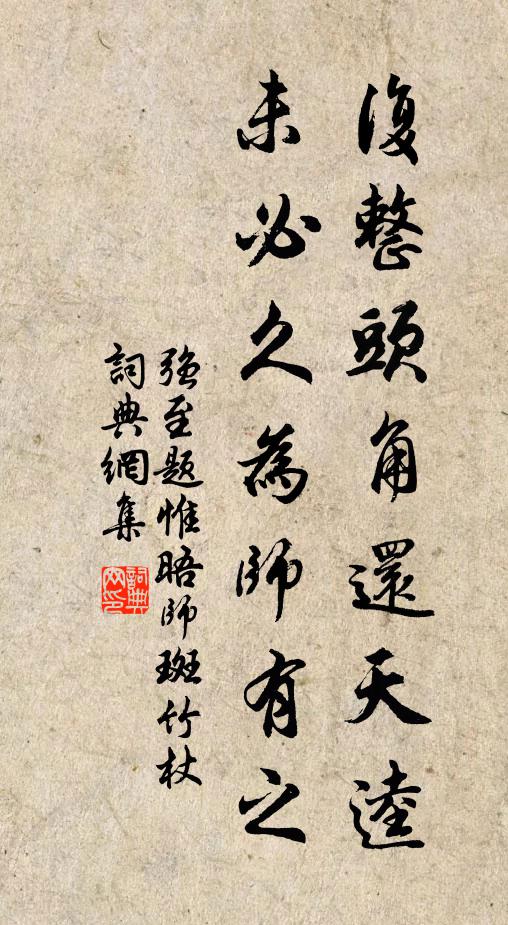 復整頭角還天逵
未必久為師有之
強至題惟晤師斑竹杖
詞典網集
詞典
网印